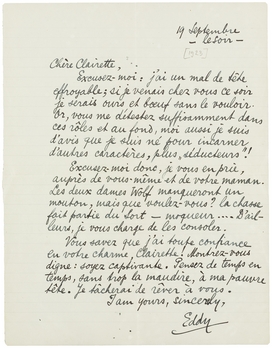 19 Septembre
le soir
Chère Clairette,
Excusez-moi: j'ai un mal de tête
effroyable; si je venais chez vous ce soir
je serais ours et bœuf sans le vouloir.
Or, vous me détestez suffisamment dans
ces rôles et au fond, moi aussi je suis
d'avis que je suis né pour incarner
d'autres caractères, plus "séducteurs"!
Excusez-moi donc, je vous en prie,
auprès de vous-même et de votre maman.
Les deux dames Wolf manqueront un
mouton, mais que voulez-vous? la chasse
fait partie du sort — moqueur .... D'ail-
leurs, je vous charge de les consoler.
Vous savez que j'ai toute confiance
en votre charme, Clairette! Montrez-vous
digne: soyez captivante. Pensez de temps en
temps, sans trop la maudire, à ma pauvre
tête. Je tâcherai de rêver à vous.
I am yours, sincerely,
Eddy